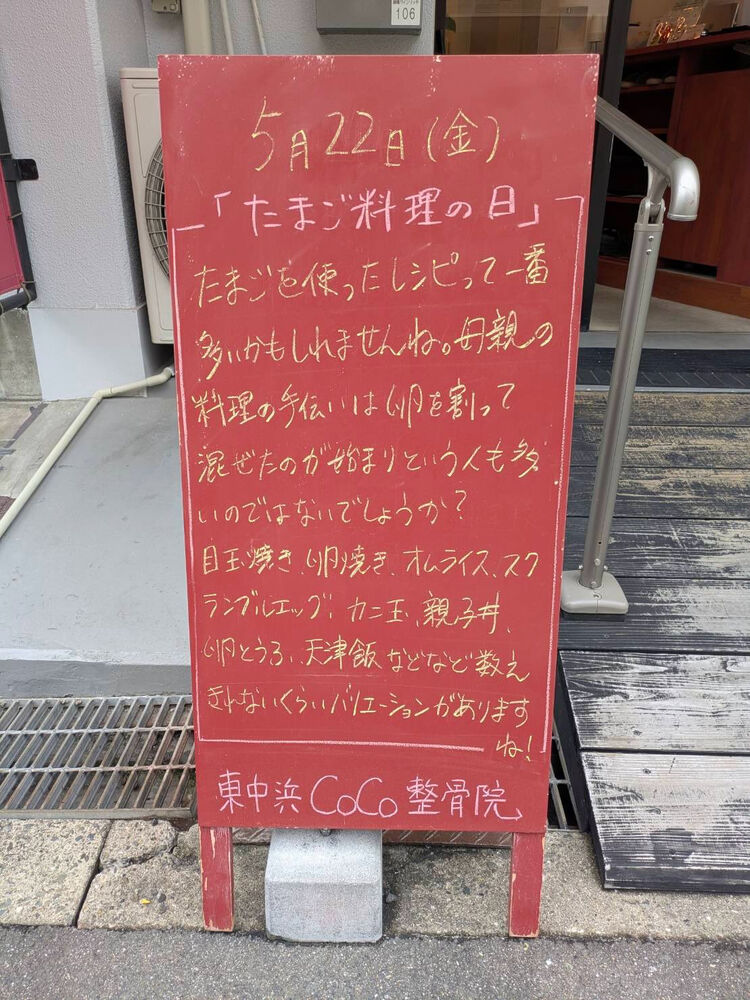 106
5月22日(金)
「たまご料理の日」
たまごを使ったレシピって一番
多いかもしれませんね。母親の
料理の手伝いは卵を割って
混ぜたのが始まりという人も多
いのではないでしょうか?
目玉焼き、卵焼き、オムライス、スク
ランブルエッグ、カニ玉、親子丼、
卵とうふ、天津飯などなど数え
きれないくらいバリエーションがあります
ね!
東中浜CoCo整骨院